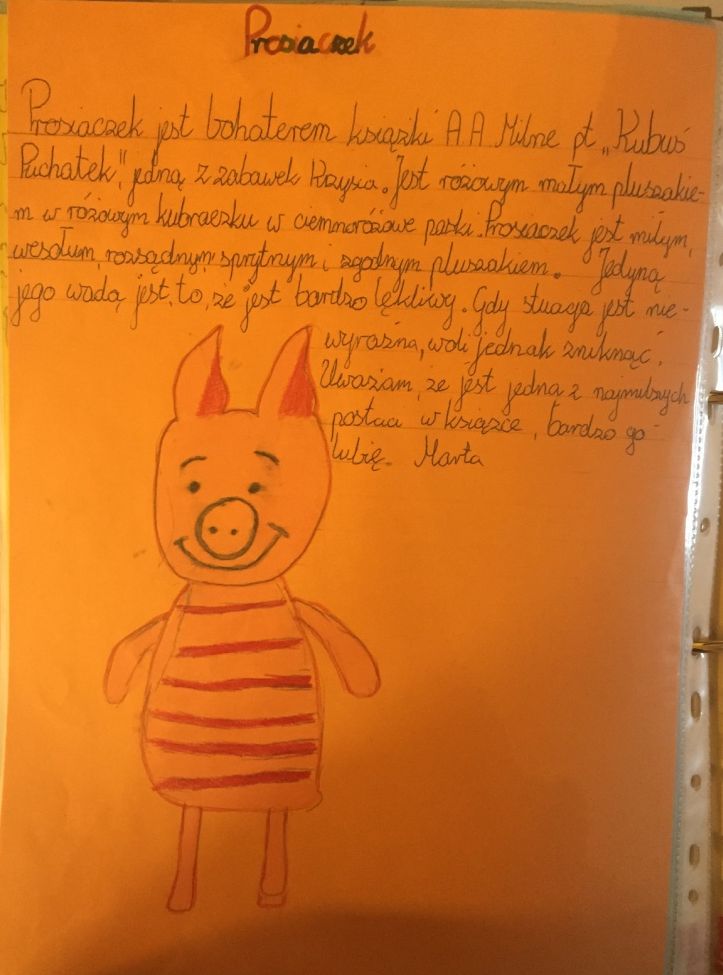 Prosiaczek
Prosiaczek jest bohaterem książki A.A Milne pt „Kubuś
Puchatek", jedną z zabawek Krzysia. Jest różowym małym pluszakie-
m w różowym kubraczku w ciemnoróżowe paski. Prosiaczek jest miłym,
wesołym, rozsądnym, sprytnym i zgodnym pluszakiem. Jedyną
jego wadą jest to, że jest bardzo lękliwy. Gdy stuacja jest nie-
wyraźna, woli jednak zniknąć.
Uważam, że jest jedną z najmilszych
postaci w książce, bardzo go
lubię. Marta